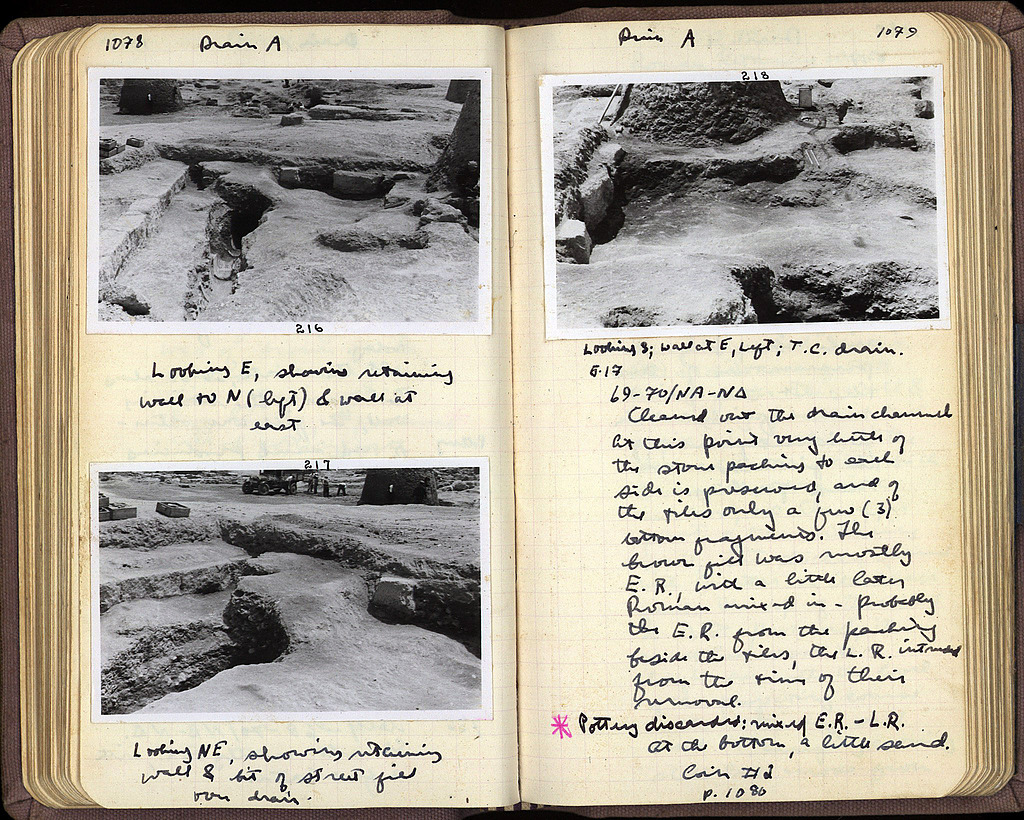 1078 Drain A
216
Looking E, showing retaining
wall to N (left) & wall at
east
217
Looking NE, showing retaining
wall & bit of street fill
over drain.
Drain A 1079
218
Looking S; wall at E, left; T.C. drain.
5.17
69-70/NA-NΔ
Cleaned out the drain channel
At this point very little of
the stone packing to each
side is preserved, and of
the tiles only a few (3)
bottom fragments. The
brown fill was mostly
E.R., with a little later
Roman mixed in - probably
the E.R. from the packing
beside the tiles, the L.R. intruded
from the time of their
removal.
Pottery discarded: mixed E.R. - L.R.
At the bottom, a little sand.
Coin #2
p. 1080